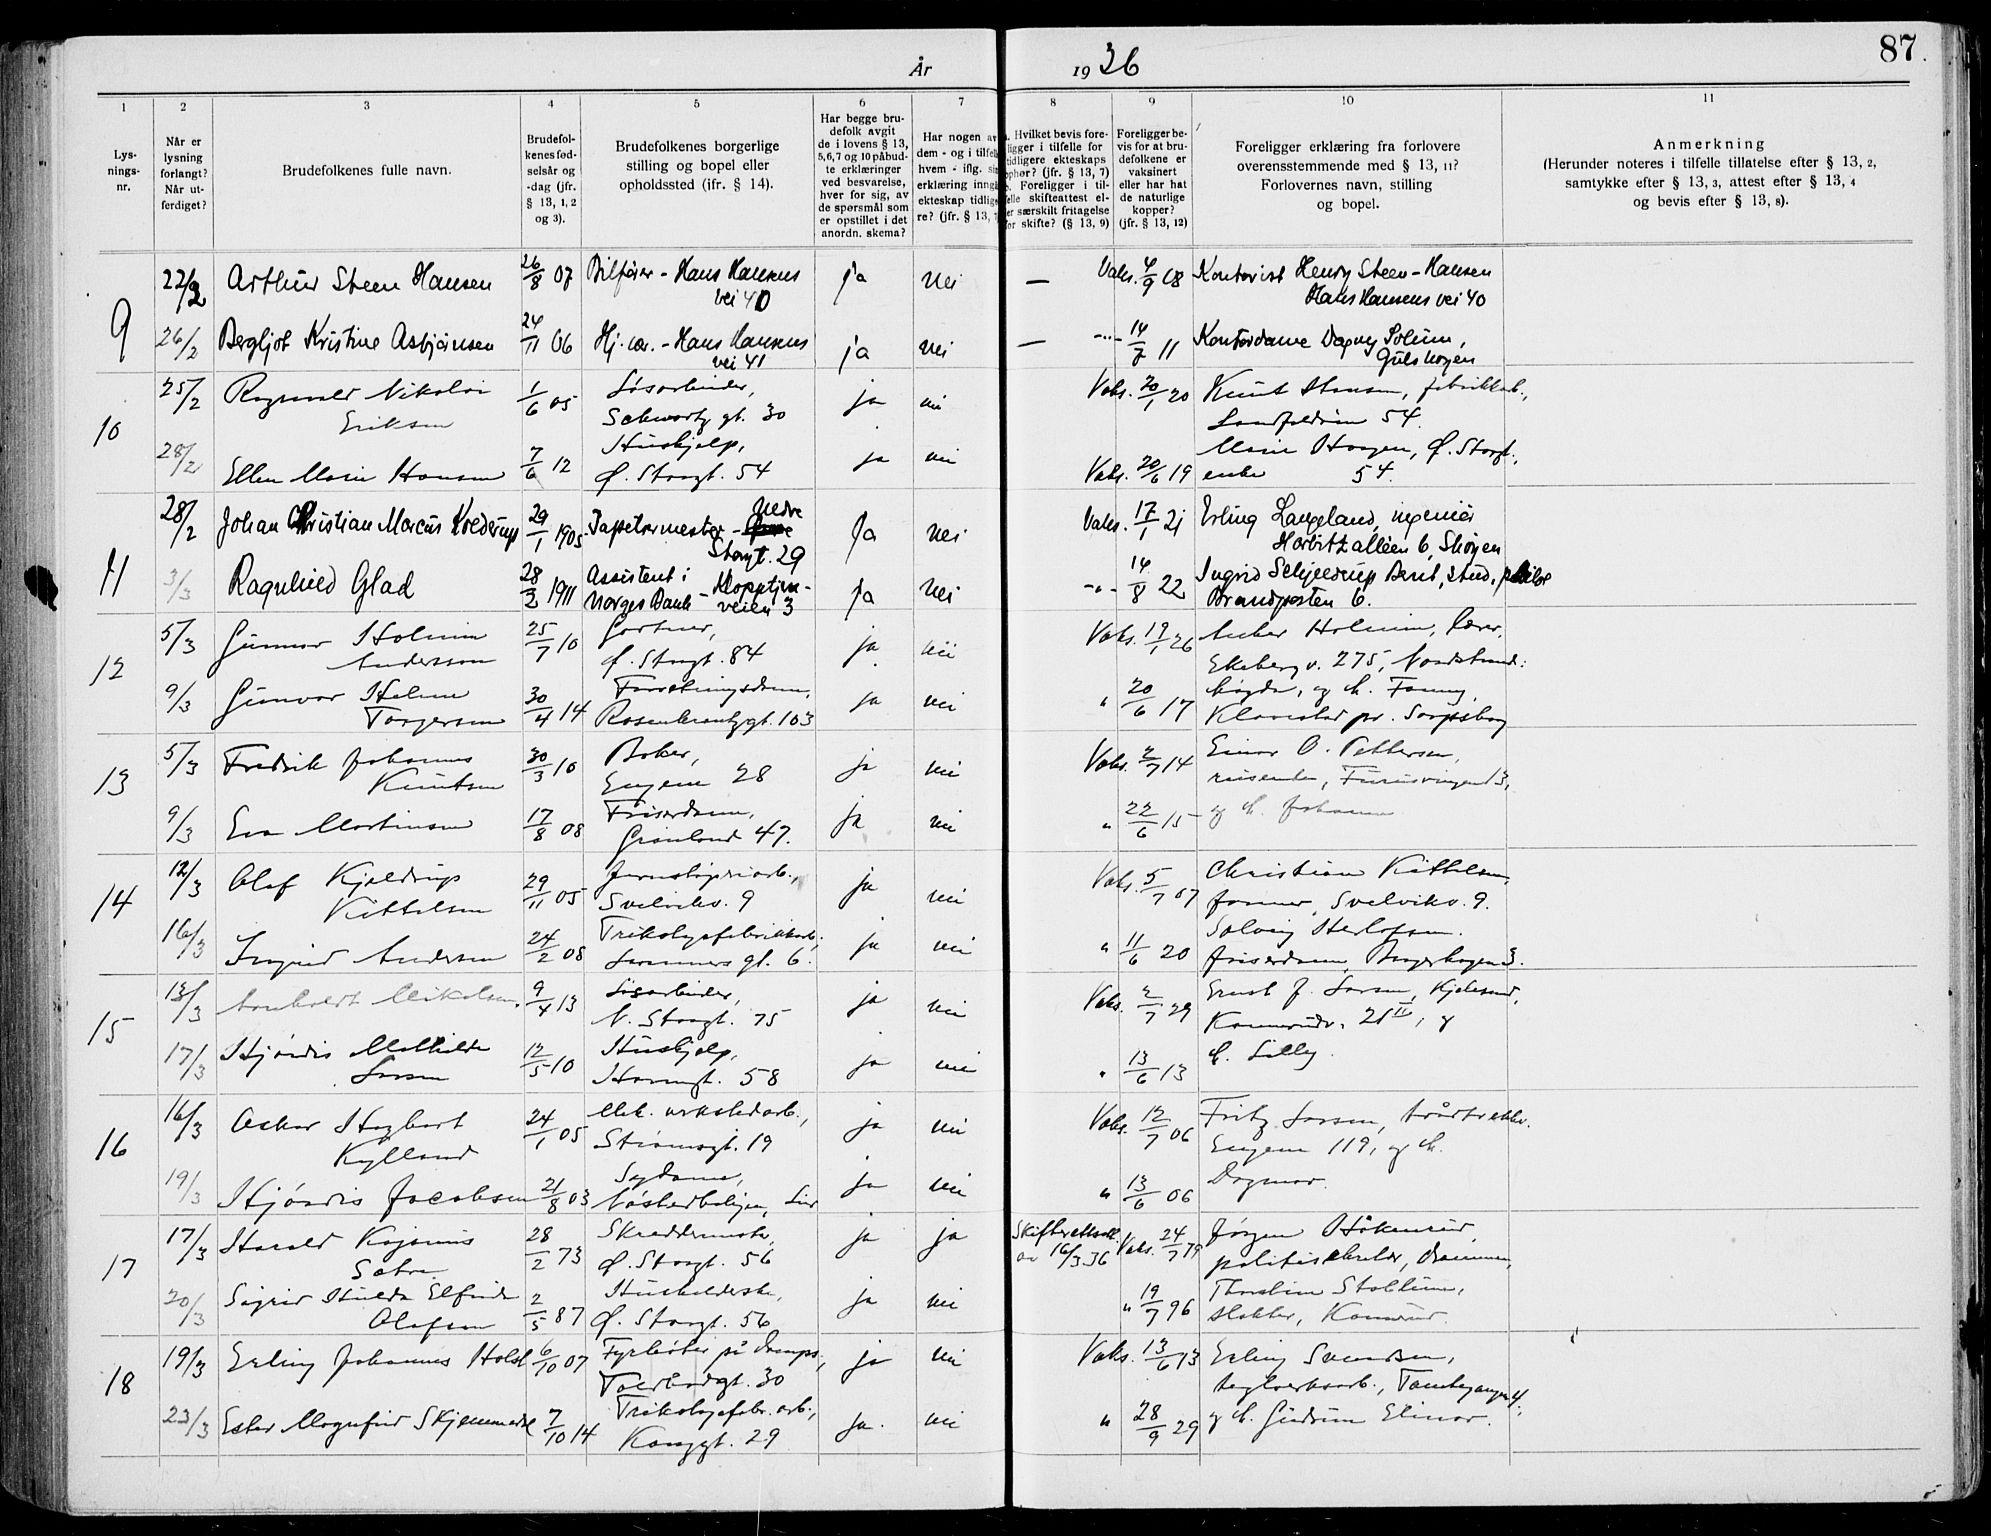 87.
År 1936
1 2 3 4 5 6 7 8 9 10 11
Lys-
nings-
nr.
Når er
lysning
forlangt?
Når ut-
ferdiget?
Brudefolkenes fulle navn.
Brudefol-
kenes fød-
selsår og
-dag (jfr.
§ 13, 1, 2
og 3).
Brudefolkenes borgerlige
stilling og bopel eller
opholdssted (ifr. § 14).
Har begge bru-
defolk avgit
de i lovens § 13,
5,6,7 og 10 påbud-
te erklæringer
ved besvarelse,
hver for sig, av
de spørsmål som
er opstillet i det
anordn. skema?
Har nogen av
dem - og i tilfelle
hvem - iflg. sin
erklæring inngå
ekteskap tidlige
re? (jfr. § 13, 7
Hvilket bevis fore-
ligger i tilfelle for
tidligere ekteskaps
ophør? (jfr. § 13, 7)
Foreligger i til-
felle skifteattest el-
er særskilt fritagelse
for skifte? (§ 13, 9)
Foreligger be-
vis for at bru-
defolkene er
vaksinert
eller har hat
de naturlige
kopper?
(jfr. § 13, 12)
Foreligger erklæring fra forlovere
overensstemmende med § 13, 11?
Forlovernes navn, stilling
og bopel.
Anmerkning
(Herunder noteres i tilfelle tillatelse efter § 13, 2,
samtykke efter § 13, 3, attest efter § 13, 4
og bevis efter § 13, 8).
9 22/2 Arthur Steen Hansen 26/8 07 Bilfører - Hans Hansens ja nei — Vaks. 4/9 08 Kontorist Henry Steen-Hansen
vei 40 Hans Hansens vei 40
26/2 Bergljot Kristine Asbjørnsen 24/11 06 Hj. vær. - Hans Hansens ja nei — -"- 14/7 11 Kontordame Dagny Solum,
vei 41 Gulskogen
10 25/2 Ragnvald Nikolai 1/6 05 Løsarbeider, ja nei Vaks. 20/1 20 Knut Hansen, fabrikkarb.,
Eriksen Schwartz gt. 30 54.
28/2 Ellen Marie Hansen 7/6 12 Hushjelp, ja nei Vaks. 20/6 19 Marie Haagen, Ø. Storgt.,
Ø. Storgt. 54 enke 54.
11 28/2 Johan Christian Marcus Krederup 29/1 1905 Tapetsermester - Nedre Ja Nei Vaks. 17/1 21 Erling Langeland, ingeniør
Storgt. 29 Harbitzalléen 6, Skøyen
3/3 Ragnhild Glad 28/2 1911 Assistent i Ja Nei -"- 14/8 22 Ingrid Schjeldrup Berit, stud. philol
Norges Bank - Kloppetjern-
veien 3 Brandposten 6.
12 5/3 Gunnar Holmin 25/7 10 Gartner, ja nei Vaks. 19/1 26 Anker Holmin, lærer,
Andersson Ø. Storgt. 84 Ekeberg v. 275, Nordstrand.
9/3 Gunvor Helene 30/4 14 Forretningsdame, ja nei " 20/6 17 høgda, og h. Fanny,
Torgersen Rosenkrantzgt. 103 pr. Sarpsborg
13 5/3 Fredrik Johannes 30/3 10 Baker, ja nei Vaks. 2/7 14 Einar O. Pettersen,
Knutsen Engene 28
9/3 Eva Martinsen 17/8 08 Friserdame, ja nei " 22/6 15 og h. Johanne
Grønland 47.
14 12/3 Olaf Kjeldrup 29/11 05 Jernstøperiarb., ja nei Vaks. 5/7 07 Christian Kittelsen,
Kittelsen Svelvikv. 9 former, Svelvikv. 9.
16/3 Ingrid Andersen 24/2 08 Trikotagefabrikkarb., ja nei " 11/6 20 Solveig Herlofsen.
gt. 6. friserdame, Bragerhagen 3.
15 13/3 Mikalsen. 9/4 13 Løsarbeider, ja nei Vaks. 2/7 29 Ernst J. Larsen,
N. Storgt. 75 Konnerudv. 21 IV, og
17/3 Hjördis Mathilde 12/5 10 Hushjelp, ja nei " 13/6 13 h. Lilly.
Larsen Havnegt. 58
16 16/3 Oskar Hagbart 24/1 05 Mek. verkstedarb., ja nei Vaks. 12/7 06 Fritz Larsen, trådtrekker.
Kylland Strømsgt. 19 Engene 119, og h.
19/3 Hjördis Jacobsen 21/8 03 Sydame, ja nei " 13/6 06 Dagmar.
Lier
17 17/3 Harald Kasinus 28/2 73 Skreddermester, ja ja Skifterettsatt. Vaks. 24/7 79 Jørgen Håkenrud,
Sætre Ø. Storgt. 56 av 16/3 36 politikonstabel, Drammen,
20/3 Sigrid Hulda Elfrida 2/5 87 Husholderske, ja nei " 19/7 96 Thorstein Stokkum,
Olafsen Ø. Storgt. 56 slakter, Konnerud.
18 19/3 Erling Johannes Holst 6/10 07 Fyrbøter på damps., ja nei Vaks. 13/6 13 Erling Svendsen,
Tollbodgt. 30 teglverksarb., 4,
23/3 Ester Magnfrid Skjemmedal 7/10 14 Trikotagefabr. arb., ja. nei " 28/9 29 og h. Gudrun Elinor.
Konggt. 29